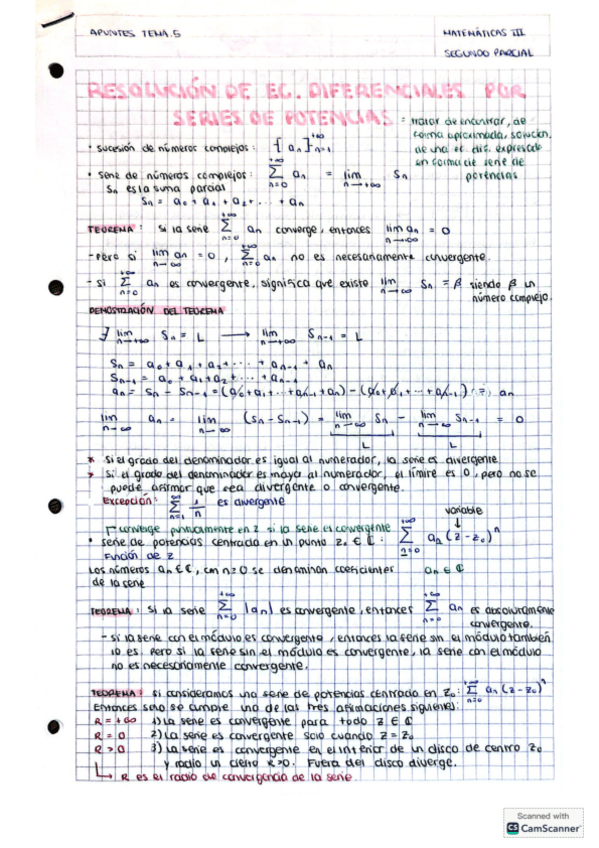 APUNTES TEMA.5
MATEMÁTICAS III
SEGUNDO PARCIAL
RESOLUCIÓN DE EC. DIFERENCIALES POR
SERIES DE POTENCIAS = tratar de encontrar, de
forma aproximada, solución
de una ec. dif. expresado
en forma de serie de
potencias
• sucesión de números complejos: {an}_{n=1}^{+∞}
• serie de números complejos: Σ_{n=0}^{+∞} an = lim_{n→+∞} Sn
Sn es la suma parcial
Sn = a0 + a1 + a2 + ··· + an
TEOREMA: Si la serie Σ_{n=0}^{+∞} an converge, entonces lim_{n→∞} an = 0
- Pero si lim_{n→∞} an = 0, Σ_{n=0}^{+∞} an no es necesariamente convergente.
- Si Σ_{n=0}^{+∞} an es convergente, significa que existe lim_{n→∞} Sn = β siendo β un
número complejo.
DEMOSTRACIÓN DEL TEOREMA
∃ lim_{n→+∞} Sn = L → lim_{n→+∞} Sn-1 = L
Sn = a0 + a1 + a2 + ··· + an-1 + an
Sn-1 = a0 + a1 + a2 + ··· + an-1
an = Sn - Sn-1 = (a0 + a1 + ··· + an-1 + an) - (a0 + a1 + ··· + an-1) = an
lim_{n→∞} an = lim_{n→∞} (Sn - Sn-1) = lim_{n→∞} Sn - lim_{n→∞} Sn-1 = 0
L L
* Si el grado del denominador es igual al numerador, la serie es divergente
* Si el grado del denominador es mayor al numerador, el límite es 0, pero no se
puede afirmar que sea divergente o convergente.
Excepción: Σ_{n=1}^{∞} 1/n es divergente
variable
converge puntualmente en z si la serie es convergente
• serie de potencias centrada en un punto z0 ∈ ℂ: Σ_{n=0}^{+∞} an (z - z0)^n
Función de z
Los números an ∈ ℂ, con n≥0 se denominan coeficientes an ∈ ℂ
de la serie
TEOREMA: Si la serie Σ_{n=0}^{+∞} |an| es convergente, entonces Σ_{n=0}^{+∞} an es absolutamente
convergente.
- Si la serie con el módulo es convergente, entonces la serie sin el módulo también
lo es. Pero si la serie sin el módulo es convergente, la serie con el módulo
no es necesariamente convergente.
TEOREMA: Si consideramos una serie de potencias centrado en z0: Σ_{n=0}^{+∞} an (z - z0)^n
Entonces solo se cumple una de las tres afirmaciones siguientes:
R = +∞ 1) La serie es convergente para todo z ∈ ℂ
R = 0 2) La serie es convergente solo cuando z = z0
R > 0 3) La serie es convergente en el interior de un disco de centro z0
y radio un cierto R>0. Fuera del disco diverge.
R es el radio de convergencia de la serie.
Scanned with
CS CamScanner